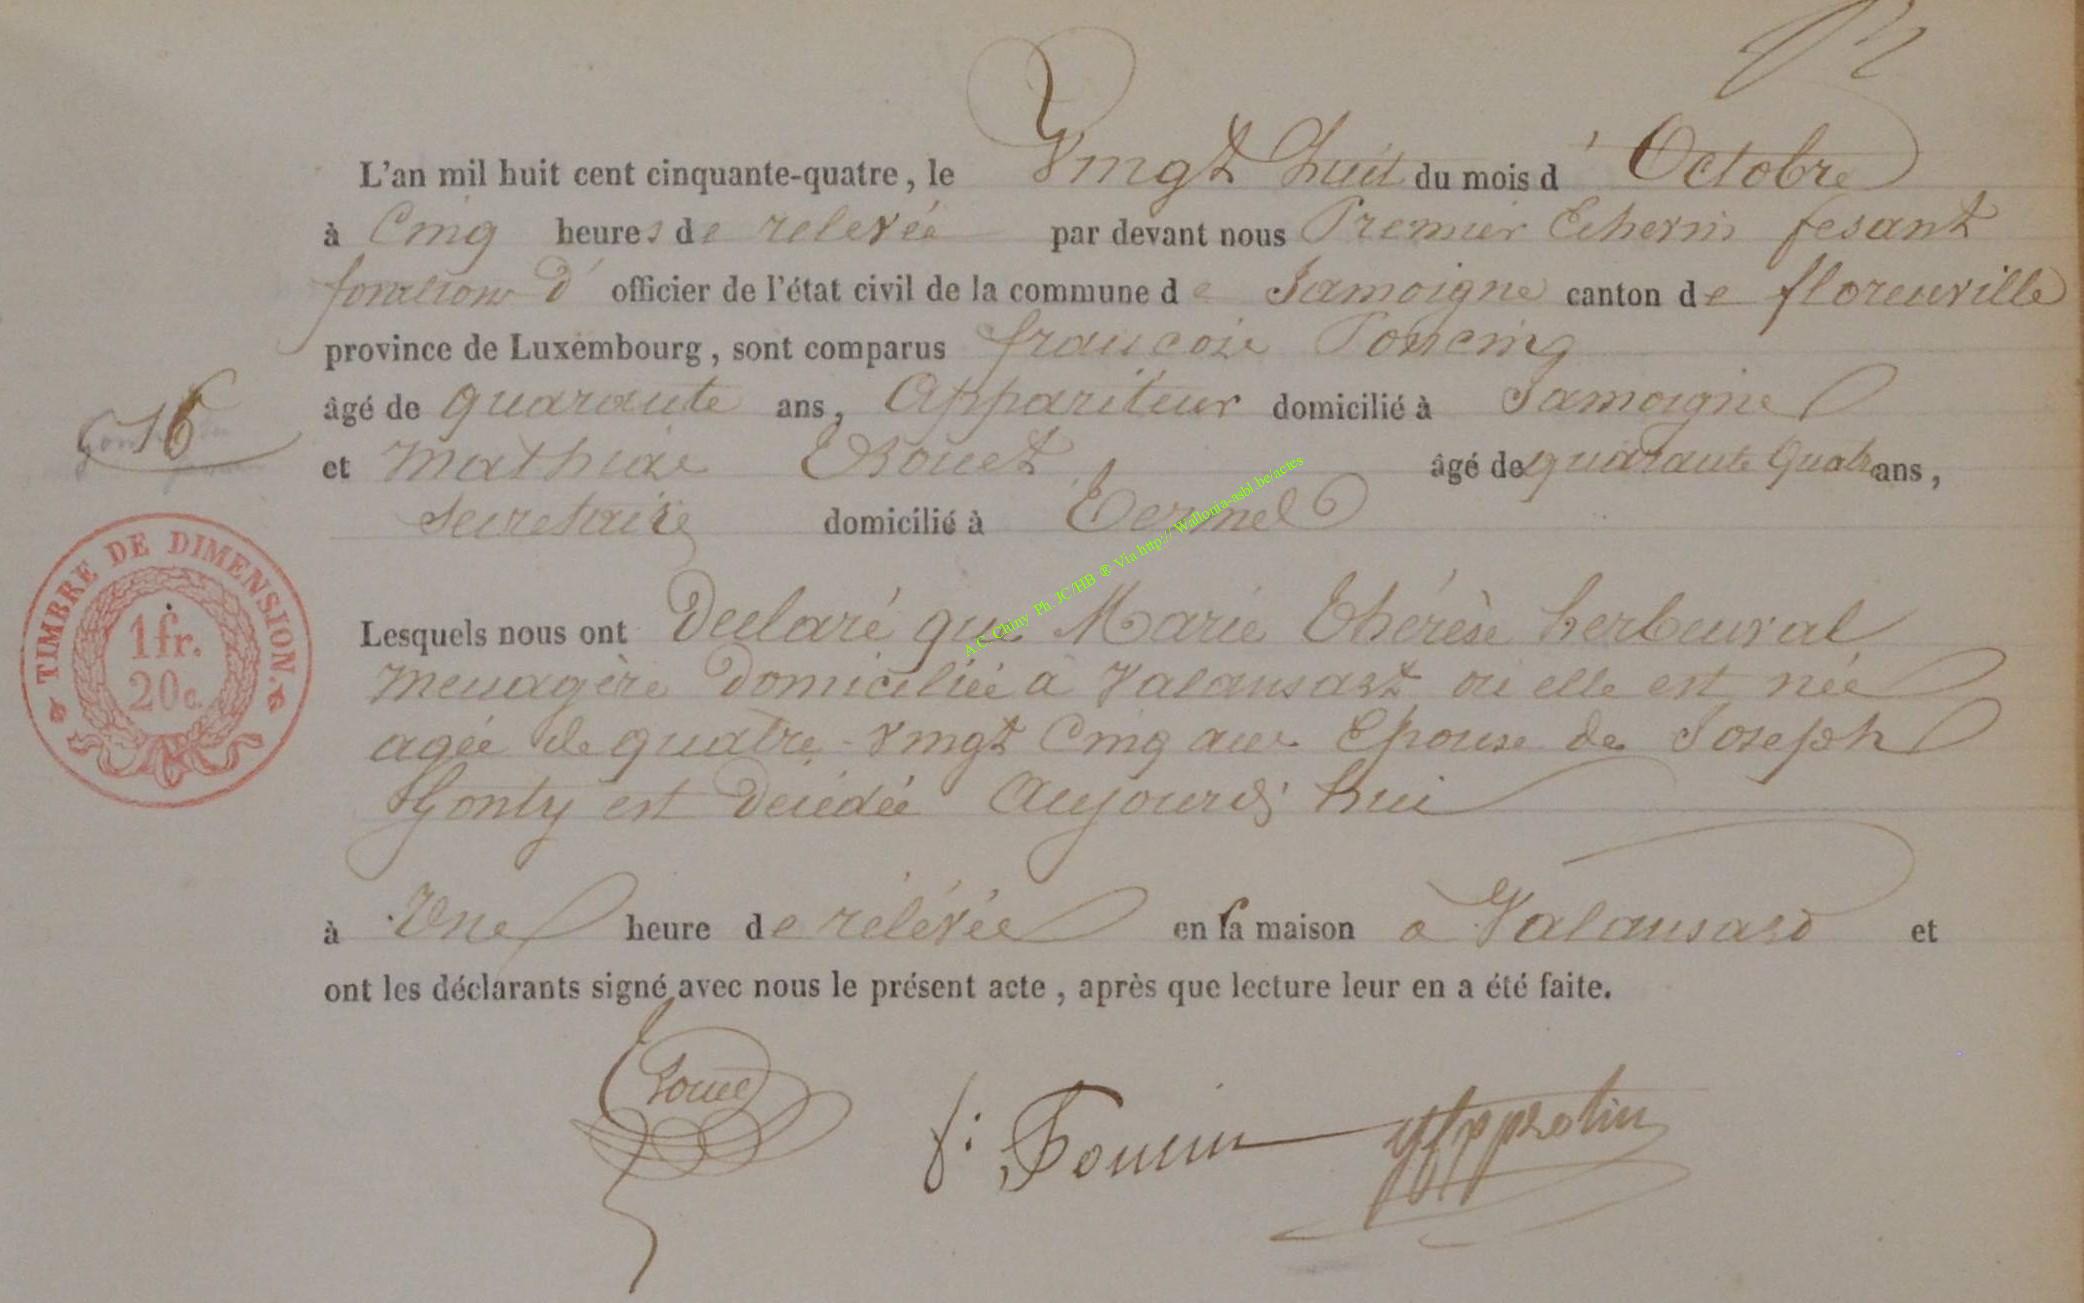 L'an mil huit cent cinquante-quatre, le Vingt huit du mois d'Octobre
à Cinq heures de relevée par devant nous Premier Echevin fesant
fonction d'officier de l'état civil de la commune de Jamoigne canton de florenville
province de Luxembourg, sont comparus françois Poncing
âgé de quarante ans, Appariteur domicilié à Jamoigne
16
et Mathias âgé de quarante Quatre ans,
Secretaire domicilié à Termel
TIMBRE DE DIMENSION.
1 fr.
20c.
Lesquels nous ont Declaré que Marie Thérèse herbeuval
menagère domiciliée à Valansart ou elle est née
agée de quatre-vingt Cinq ans Epouse de Joseph
Gonty est décédée Aujourd'hui
à Une heure de rélévée en sa maison a Valansard et
ont les déclarants signé avec nous le présent acte, après que lecture leur en a été faite.
f: Poncin
A.C. Chiny Ph. JC/HB ® Via http://Wallonia-asbl.be/actes